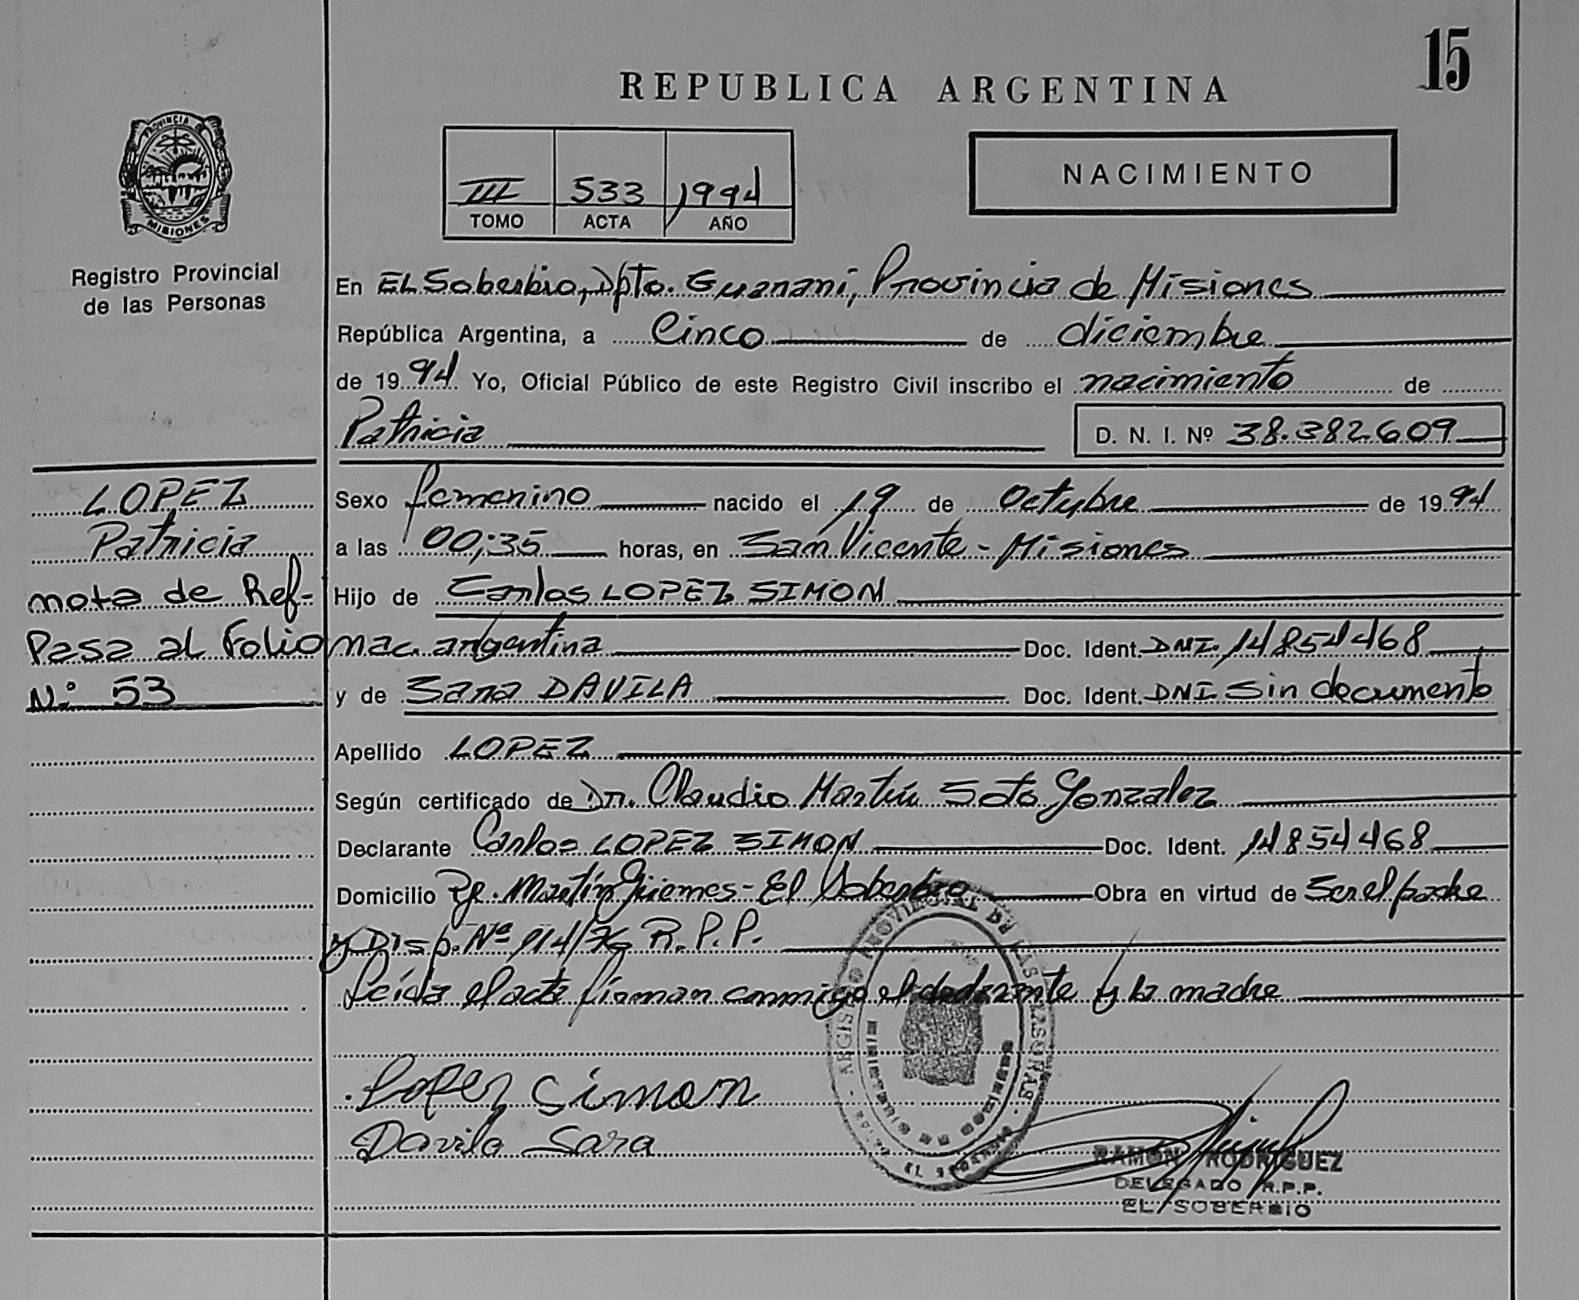 15
REPUBLICA ARGENTINA
PROVINCIA DE
MISIONES
Registro Provincial
de las Personas
III 533 1994
TOMO ACTA AÑO
NACIMIENTO
En EL Soberbio, Dpto. Guarani, Provincia de Misiones
República Argentina, a Cinco de diciembre
de 1994 Yo, Oficial Público de este Registro Civil inscribo el nacimiento de
Patricia D. N. I. Nº 38.382.609
LOPEZ
Patricia
nota de Ref-
Pasa al Folio
Nº 53
Sexo femenino nacido el 19 de Octubre de 1994
a las 00;35 horas, en San Vicente - Misiones
Hijo de Carlos LOPEZ SIMON
nac. argentina Doc. Ident. DNI. 14854468
y de Sara DAVILA Doc. Ident. DNI Sin documento
Apellido LOPEZ
Según certificado de Dr. Claudio Martín Soto Gonzalez
Declarante Carlos LOPEZ SIMON Doc. Ident. 14854468
Domicilio Martín Güemes - El Soberbio Obra en virtud de Ser el padre
y Disp. Nº R.P.P.
Leída el acta firman conmigo el declarante y la madre
Lopez Simon
Davila Sara
REGISTRO PROVINCIAL DE LAS PERSONAS
EL SOBERBIO
RAMON RODRIGUEZ
DELEGADO R.P.P.
EL SOBERBIO